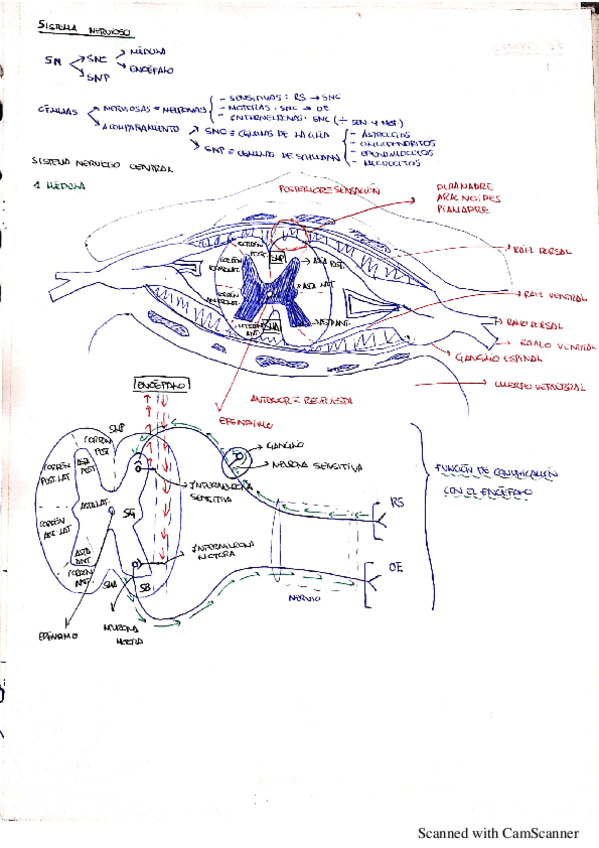 SISTEMA NERVIOSO
SN
SNC
MÉDULA
ENCÉFALO
SNP
CÉLULAS
NERVIOSAS = NEURONAS
- SENSITIVAS: RS → SNC
- MOTORAS: SNC → OE
- INTERNEURONAS: SNC (÷ SEN. Y MOT.)
ACOMPAÑAMIENTO
SNC = CÉLULAS DE LA GLÍA
SNP = CÉLULAS DE SCHWANN
- ASTROCITOS
- OLIGODENDROCITOS
- EPENDIMOCITOS
- MICROCITOS
SISTEMA NERVIOSO CENTRAL
1. MÉDULA
POSTERIOR = SENSACIÓN
DURAMADRE
ARACNOIDES
PIAMADRE
CORDÓN POST.
SMP
ASTA POST.
CORDÓN
ASTA LAT
CORDÓN
ASTA ANT
CORDÓN ANT
SMA
RAIZ DORSAL
RAIZ VENTRAL
RAMO DORSAL
RAMO VENTRAL
GANGLIO ESPINAL
CUERPO VERTEBRAL
ANTERIOR = RESPUESTA
EPÉNDIMO
ENCÉFALO
SMP
CORDÓN POST
ASTA POST
CORDÓN POST. LAT
ASTA LAT.
SG
CORDÓN ANT. LAT
ASTA ANT
CORDÓN ANT.
SMA
SB
GANGLIO
NEURONA SENSITIVA
INTERNEURONA SENSITIVA
INTERNEURONA MOTORA
RS
OE
NERVIO
EPÉNDIMO
NEURONA MOTORA
FUNCIÓN DE COMUNICACIÓN
CON EL ENCÉFALO
Scanned with CamScanner